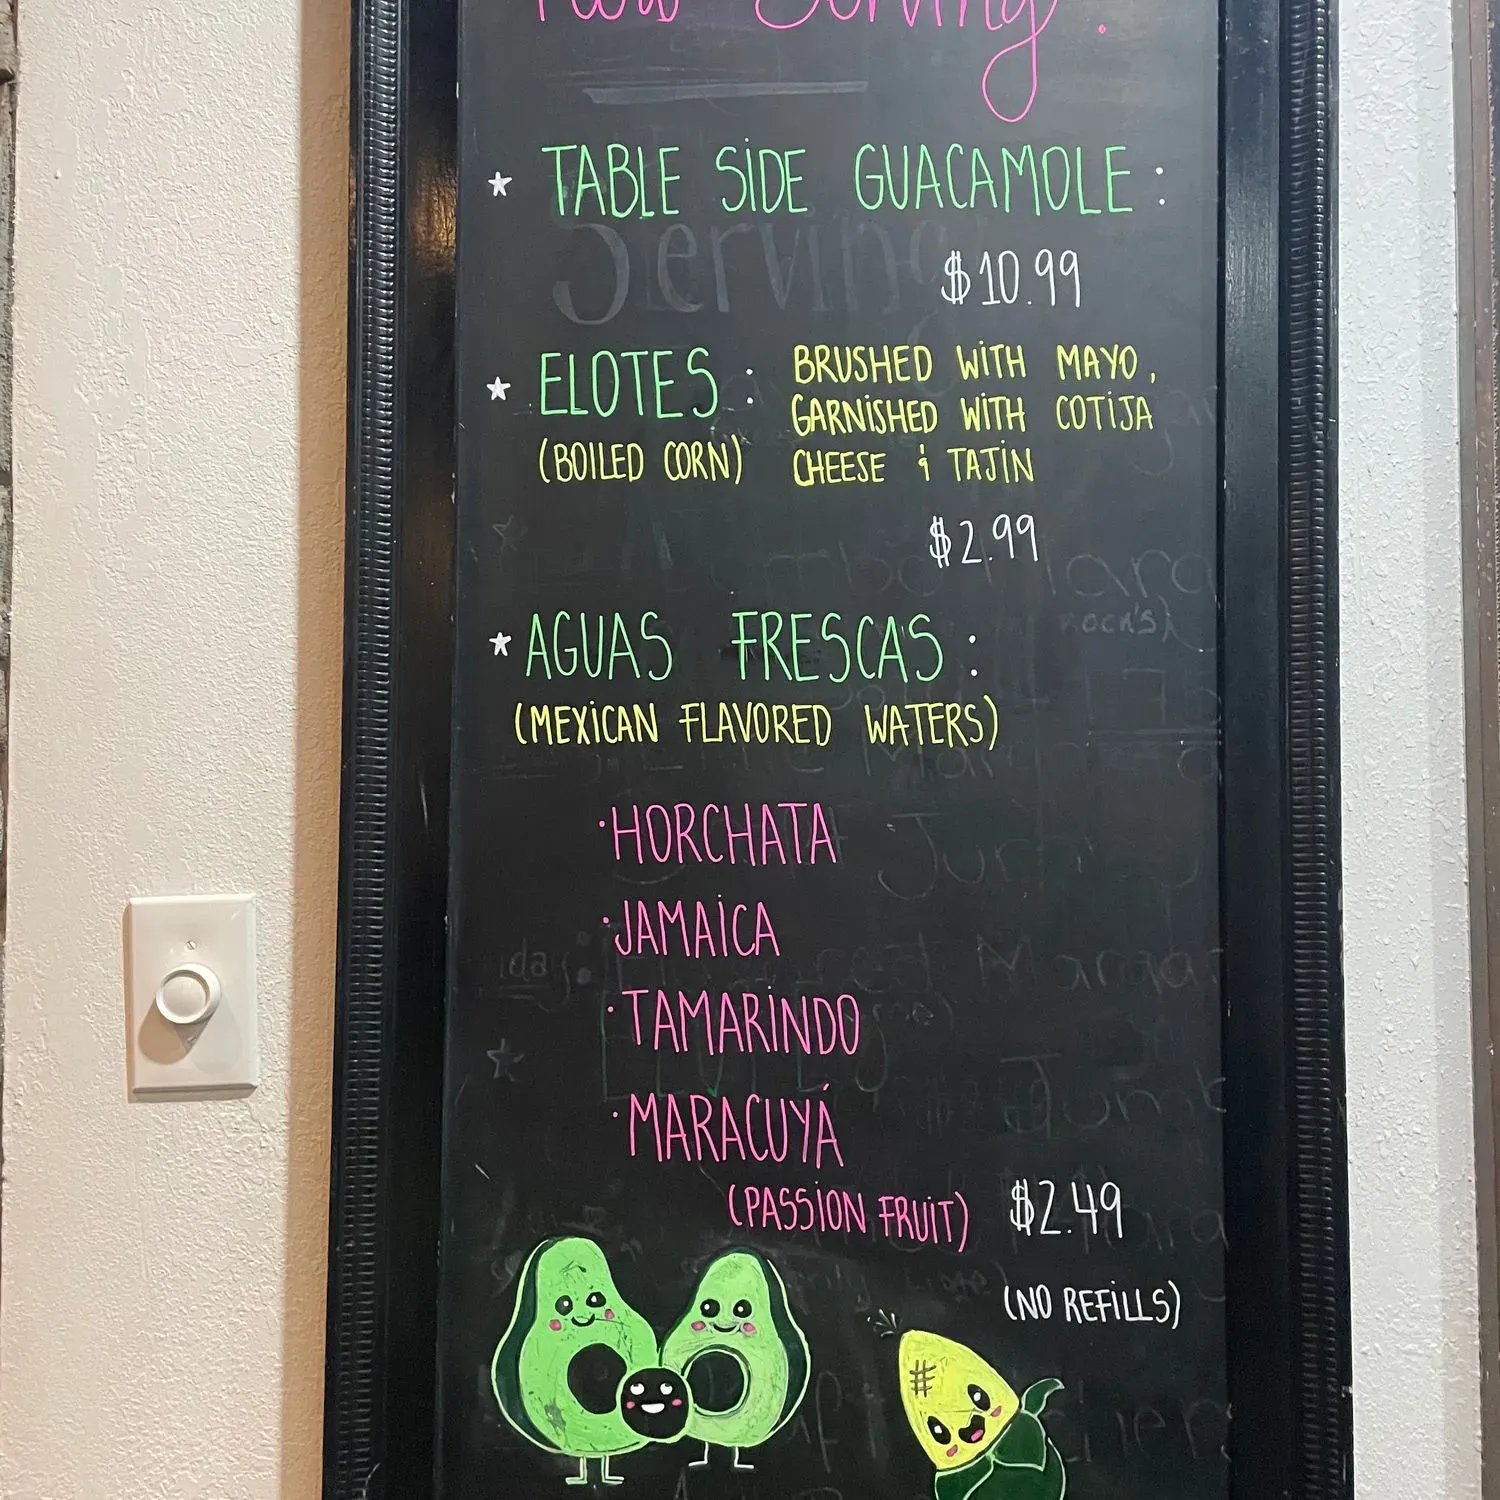 Now Serving:
* TABLE SIDE GUACAMOLE:
$10.99
* ELOTES: BRUSHED WITH MAYO,
GARNISHED WITH COTIJA
(BOILED CORN) CHEESE & TAJIN
$2.99
* AGUAS FRESCAS:
(MEXICAN FLAVORED WATERS)
· HORCHATA
· JAMAICA
· TAMARINDO
· MARACUYÁ
(PASSION FRUIT) $2.49
(NO REFILLS)
Serving